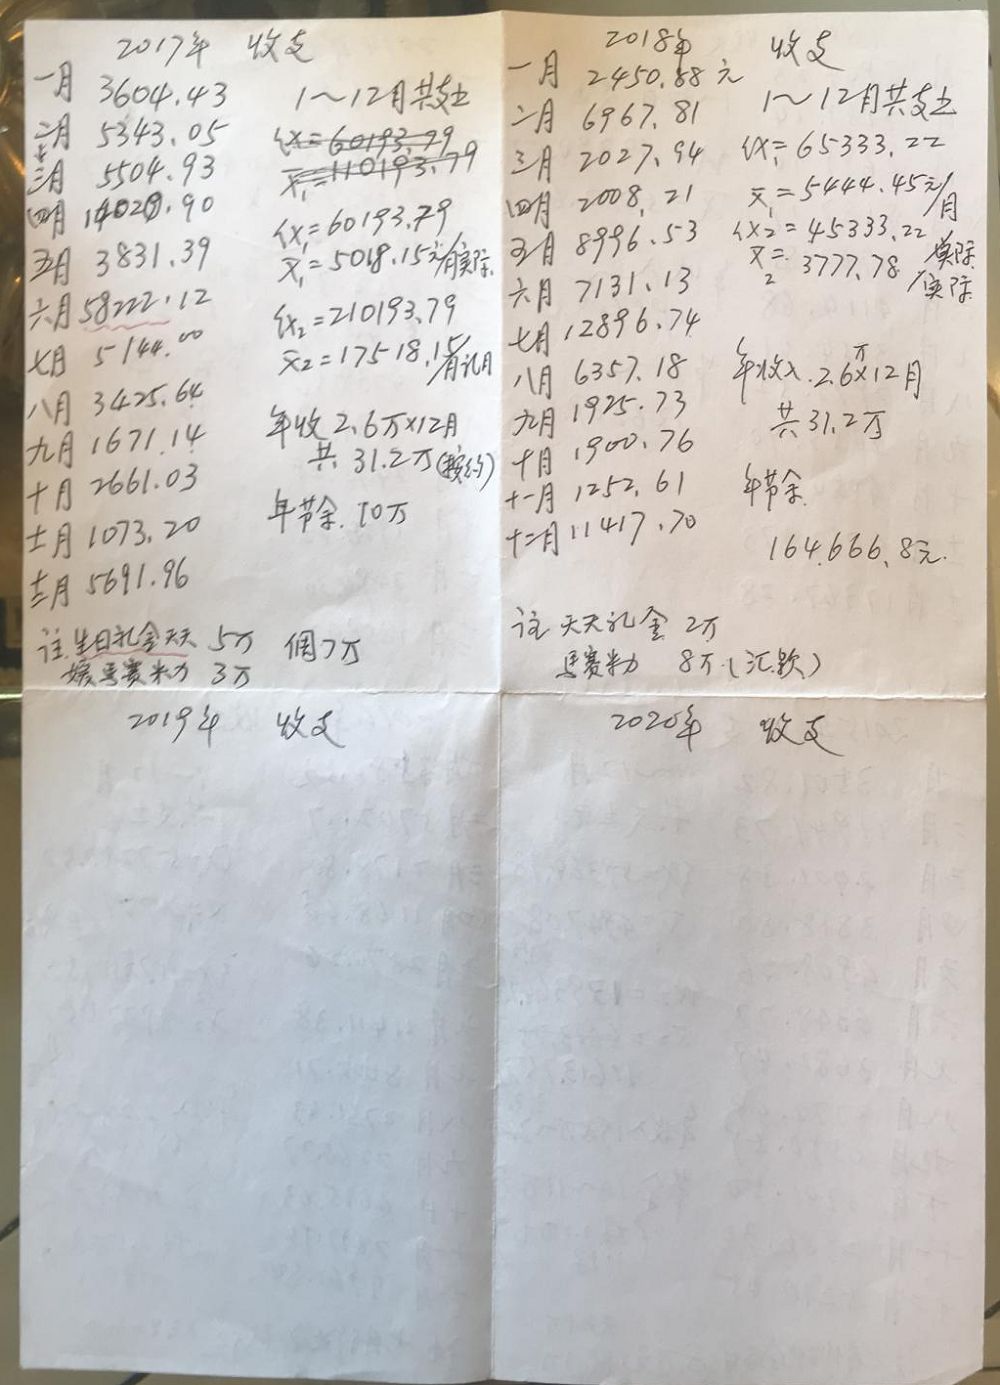 2017年 收支
一月 3604.43
二月 5343.05
三月 5504.93
四月 14029.90
五月 3831.39
六月 58222.12
七月 5144.00
八月 3425.64
九月 1671.14
十月 2661.03
十一月 1073.20
十二月 5691.96
1～12月共支出
x̄₁=110193.79
x₁=60193.79
x̄₁=5018.15元/月实际
x₂=210193.79
x̄₂=17518.15/月
年收 2.6万×12月
共 31.2万
年节余 10万
注 生日礼金天天 5万
3万
2018年 收支
一月 2450.88元
二月 6967.81
三月 2027.94
四月 2008.21
五月 8996.53
六月 7131.13
七月 12896.74
八月 6357.18
九月 1925.73
十月 1900.76
十一月 1252.61
十二月 11417.70
1～12月共支出
x₁=65333.22
x̄₁=5444.45元/月
x₂=45333.22 实际
x̄₂=3777.78/实际
年收入 2.6万×12月
共 31.2万
年节余
164.666.8元
注 天天礼金 2万
8万(汇款)
2019年 收支
2020年 收支